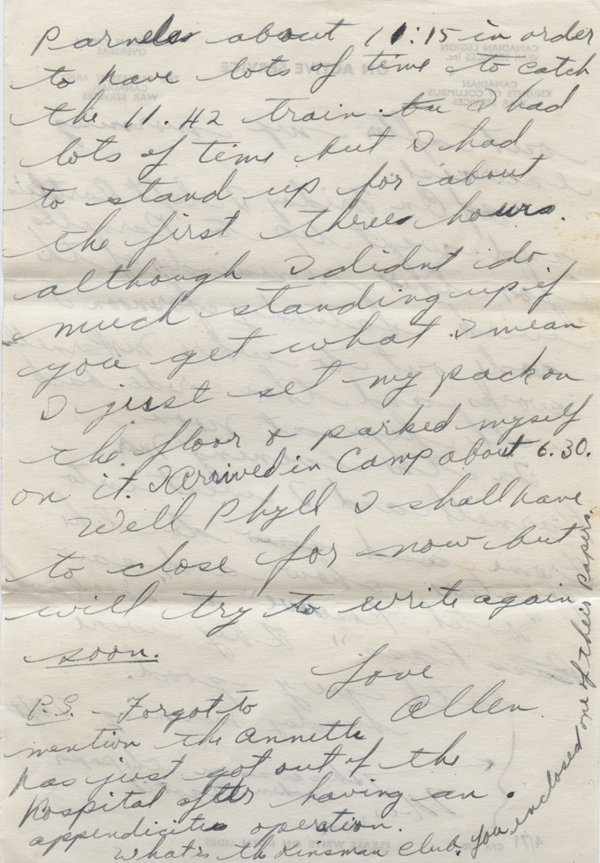 Parnells about 11:15 in order
to have lots of time to catch
the 11.42 train. I had
lots of time but I had
to stand up for about
the first threes hours.
although I didnt do
much standing up if
you get what I mean
I just set my pack on
the floor & parked myself
on it. I Arrived in Camp about 6.30.
Well Phyll I shall have
to close for now but
will try to write again
soon.
Love
Allen
P.S. - Forgot to
mention the Annette
has just got out of the
hospital after having an
appendicitis operation.
What's the Kinsman Club. You enclosed one of their papers.